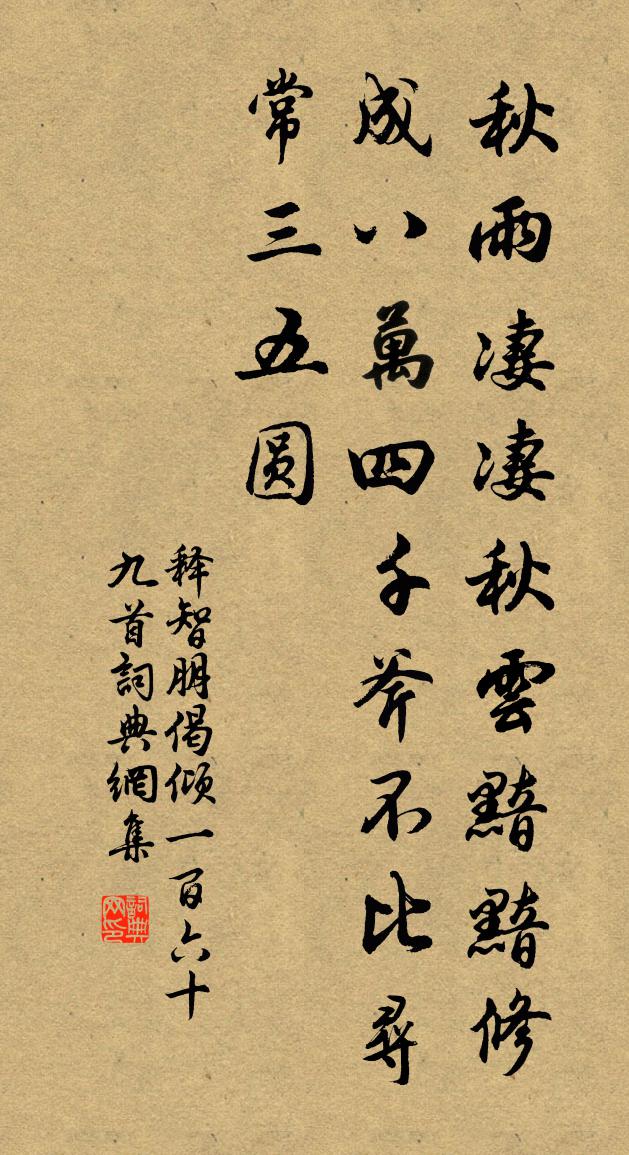 秋雨凄凄秋雲黯黯修
成八萬四千斧不比尋
常三五圆
释智朋偈倾一百六十
九首詞典網集
詞典
网印